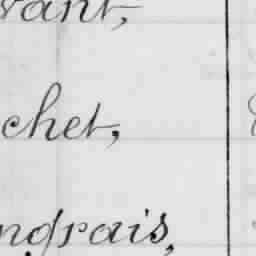 vant,
chet,
ngrais,